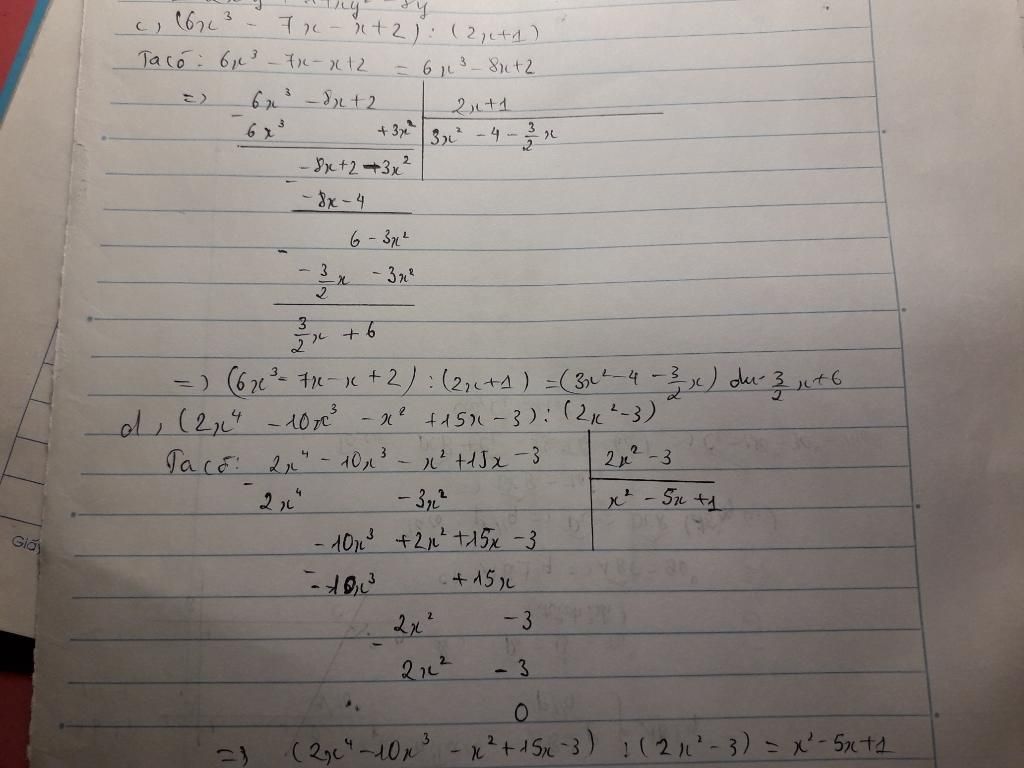 c, (6x³ - 7x - x + 2) : (2x+1)
Ta có: 6x³ - 7x - x + 2 = 6x³ - 8x + 2
=> 6x³ - 8x + 2 | 2x+1
- 6x³ + 3x² | 3x² - 4 - 3/2 x
- 8x + 2 - 3x²
- - 8x - 4
6 - 3x²
- - 3/2 x - 3x²
3/2 x + 6
=> (6x³ - 7x - x + 2) : (2x+1) = (3x² - 4 - 3/2 x) dư 3/2 x + 6
d, (2x⁴ - 10x³ - x² + 15x - 3) : (2x² - 3)
Ta có: 2x⁴ - 10x³ - x² + 15x - 3 | 2x² - 3
- 2x⁴ - 3x² | x² - 5x + 1
- 10x³ + 2x² + 15x - 3
- - 10x³ + 15x
2x² - 3
- 2x² - 3
0
=> (2x⁴ - 10x³ - x² + 15x - 3) : (2x² - 3) = x² - 5x + 1
Giấy